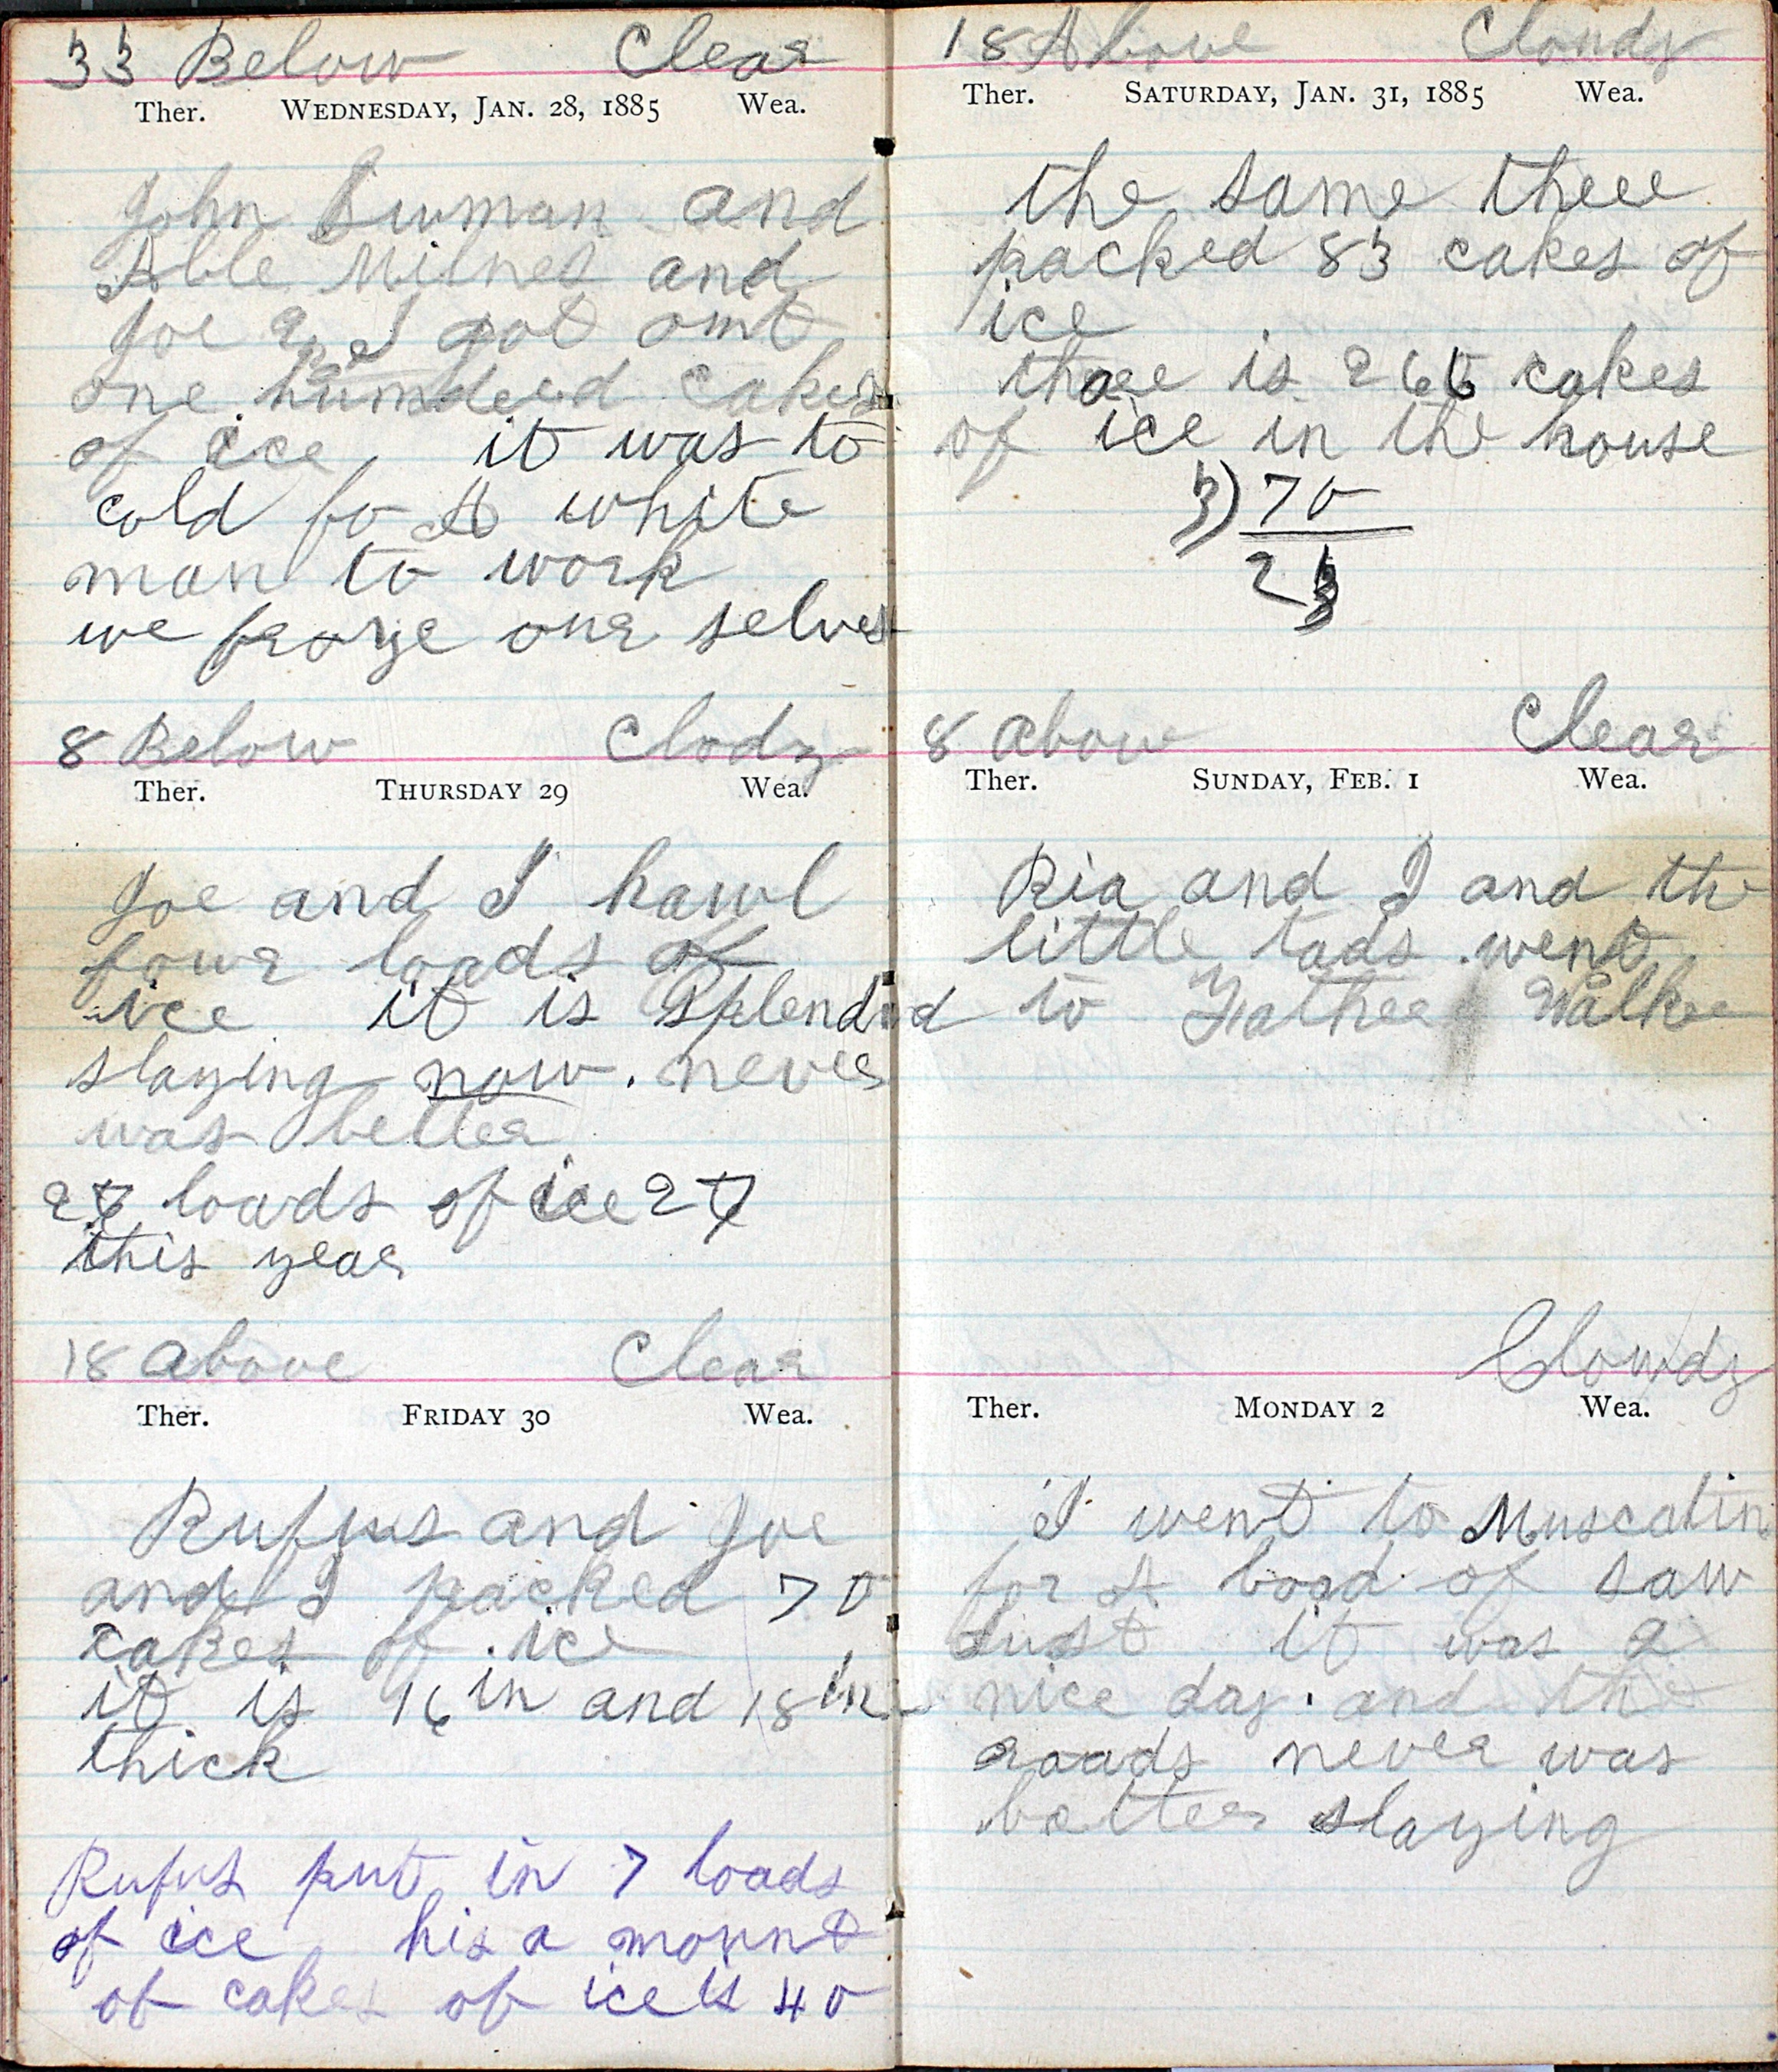 33 Below Clear
Ther. WEDNESDAY, JAN. 28, 1885 Wea.
John Burman and
Able Milnes and
Joe & I got out
one humdered cakes
of ice it was to
cold fo A white
man to work
we froze our selves
8 Below Clody
Ther. THURSDAY 29 Wea.
Joe and I hawl
fowr loads of
ice it is Splendid
slaying now. never
was better
27 loads of ice 27
this year
18 above Clear
Ther. FRIDAY 30 Wea.
Rufus and Joe
and I packed 70
cakes of ice
it is 16 in and 18 in
thick
Rufus put in 7 loads
of ice his a mount
of cakes of ice is 40
18 Above Cloudy
Ther. SATURDAY, JAN. 31, 1885 Wea.
the same three
packed 83 cakes of
ice
thare is 266 cakes
of ice in the house
3) 70
23
8 abov Clear
Ther. SUNDAY, FEB. 1 Wea.
Ria and I and the
little tads went
to Father Walker
Clowdy
Ther. MONDAY 2 Wea.
I went to Muscatin
for A load of saw
dust it was a
nice day. and the
roads never was
better slaying